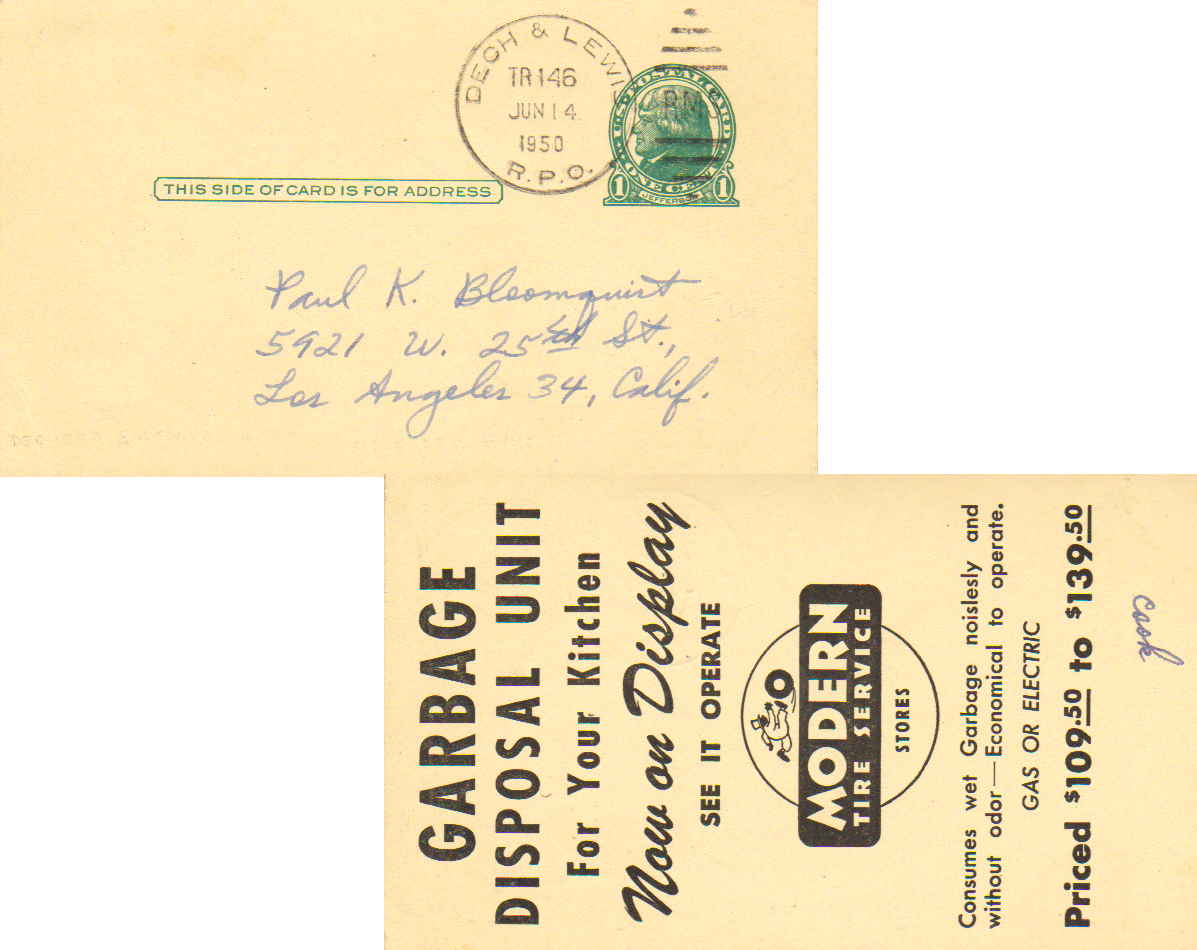 DECH & LEWIS
TR146
JUN 14
1950
R.P.O.
RMS
U.S. POSTAL CARD
ONE CENT
1 1
JEFFERSON
THIS SIDE OF CARD IS FOR ADDRESS
Paul K. Bloomquist
5921 W. 25th St.,
Los Angeles 34, Calif.
GARBAGE
DISPOSAL UNIT
For Your Kitchen
Now on Display
SEE IT OPERATE
MODERN
TIRE SERVICE
STORES
Consumes wet Garbage noislesly and
without odor — Economical to operate.
GAS OR ELECTRIC
Priced $109.50 to $139.50
Cook